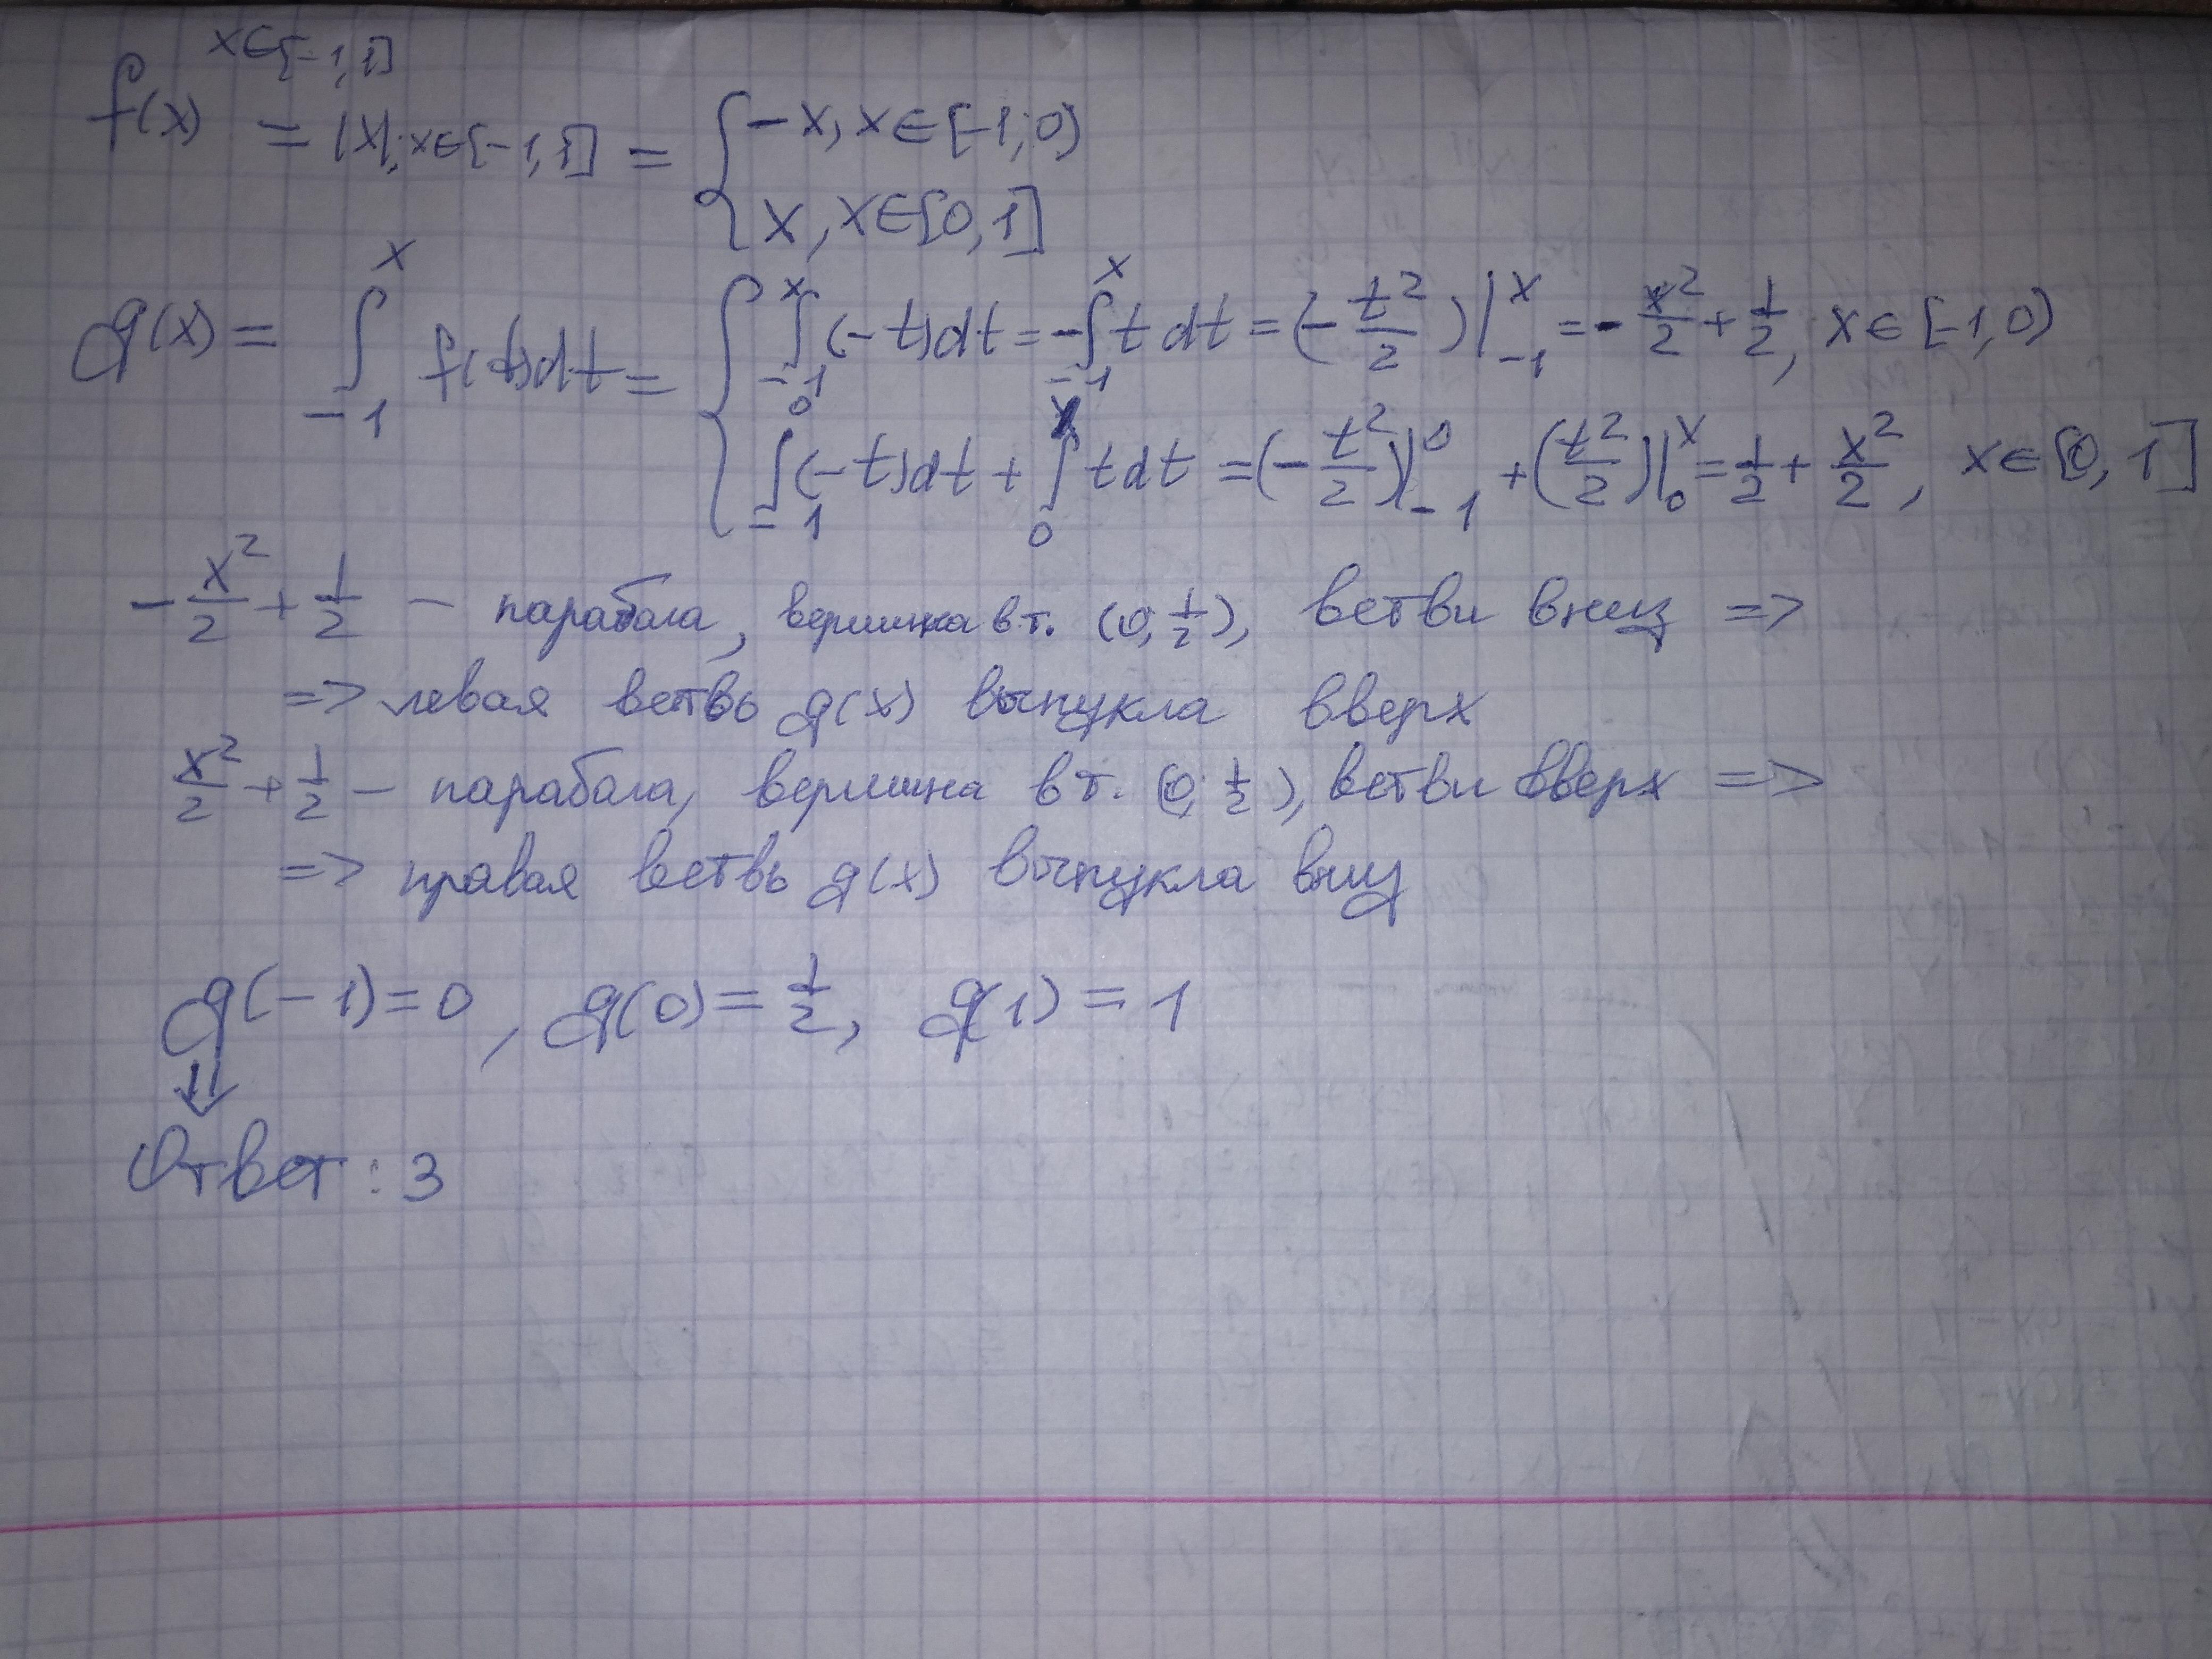 x∈[-1,1]
f(x) = |x|, x∈[-1,1] = { -x, x∈[-1;0)
x, x∈[0,1]
g(x) = ∫_{-1}^{x} f(t)dt = { ∫_{-1}^{x} (-t)dt = -∫_{-1}^{x} t dt = (-t²/2)|_{-1}^{x} = -x²/2 + 1/2, x∈[-1,0)
∫_{-1}^{0} (-t)dt + ∫_{0}^{x} t dt = (-t²/2)|_{-1}^{0} + (t²/2)|_{0}^{x} = 1/2 + x²/2, x∈[0,1]
-x²/2 + 1/2 - парабола, вершина в т. (0, 1/2), ветви вниз =>
=> левая ветвь g(x) выпукла вверх
x²/2 + 1/2 - парабола, вершина в т. (0; 1/2), ветви вверх =>
=> правая ветвь g(x) выпукла вниз
g(-1)=0, g(0)=1/2, g(1)=1
⇓
Ответ: 3